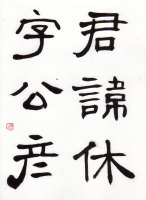 君諱休
字公彦